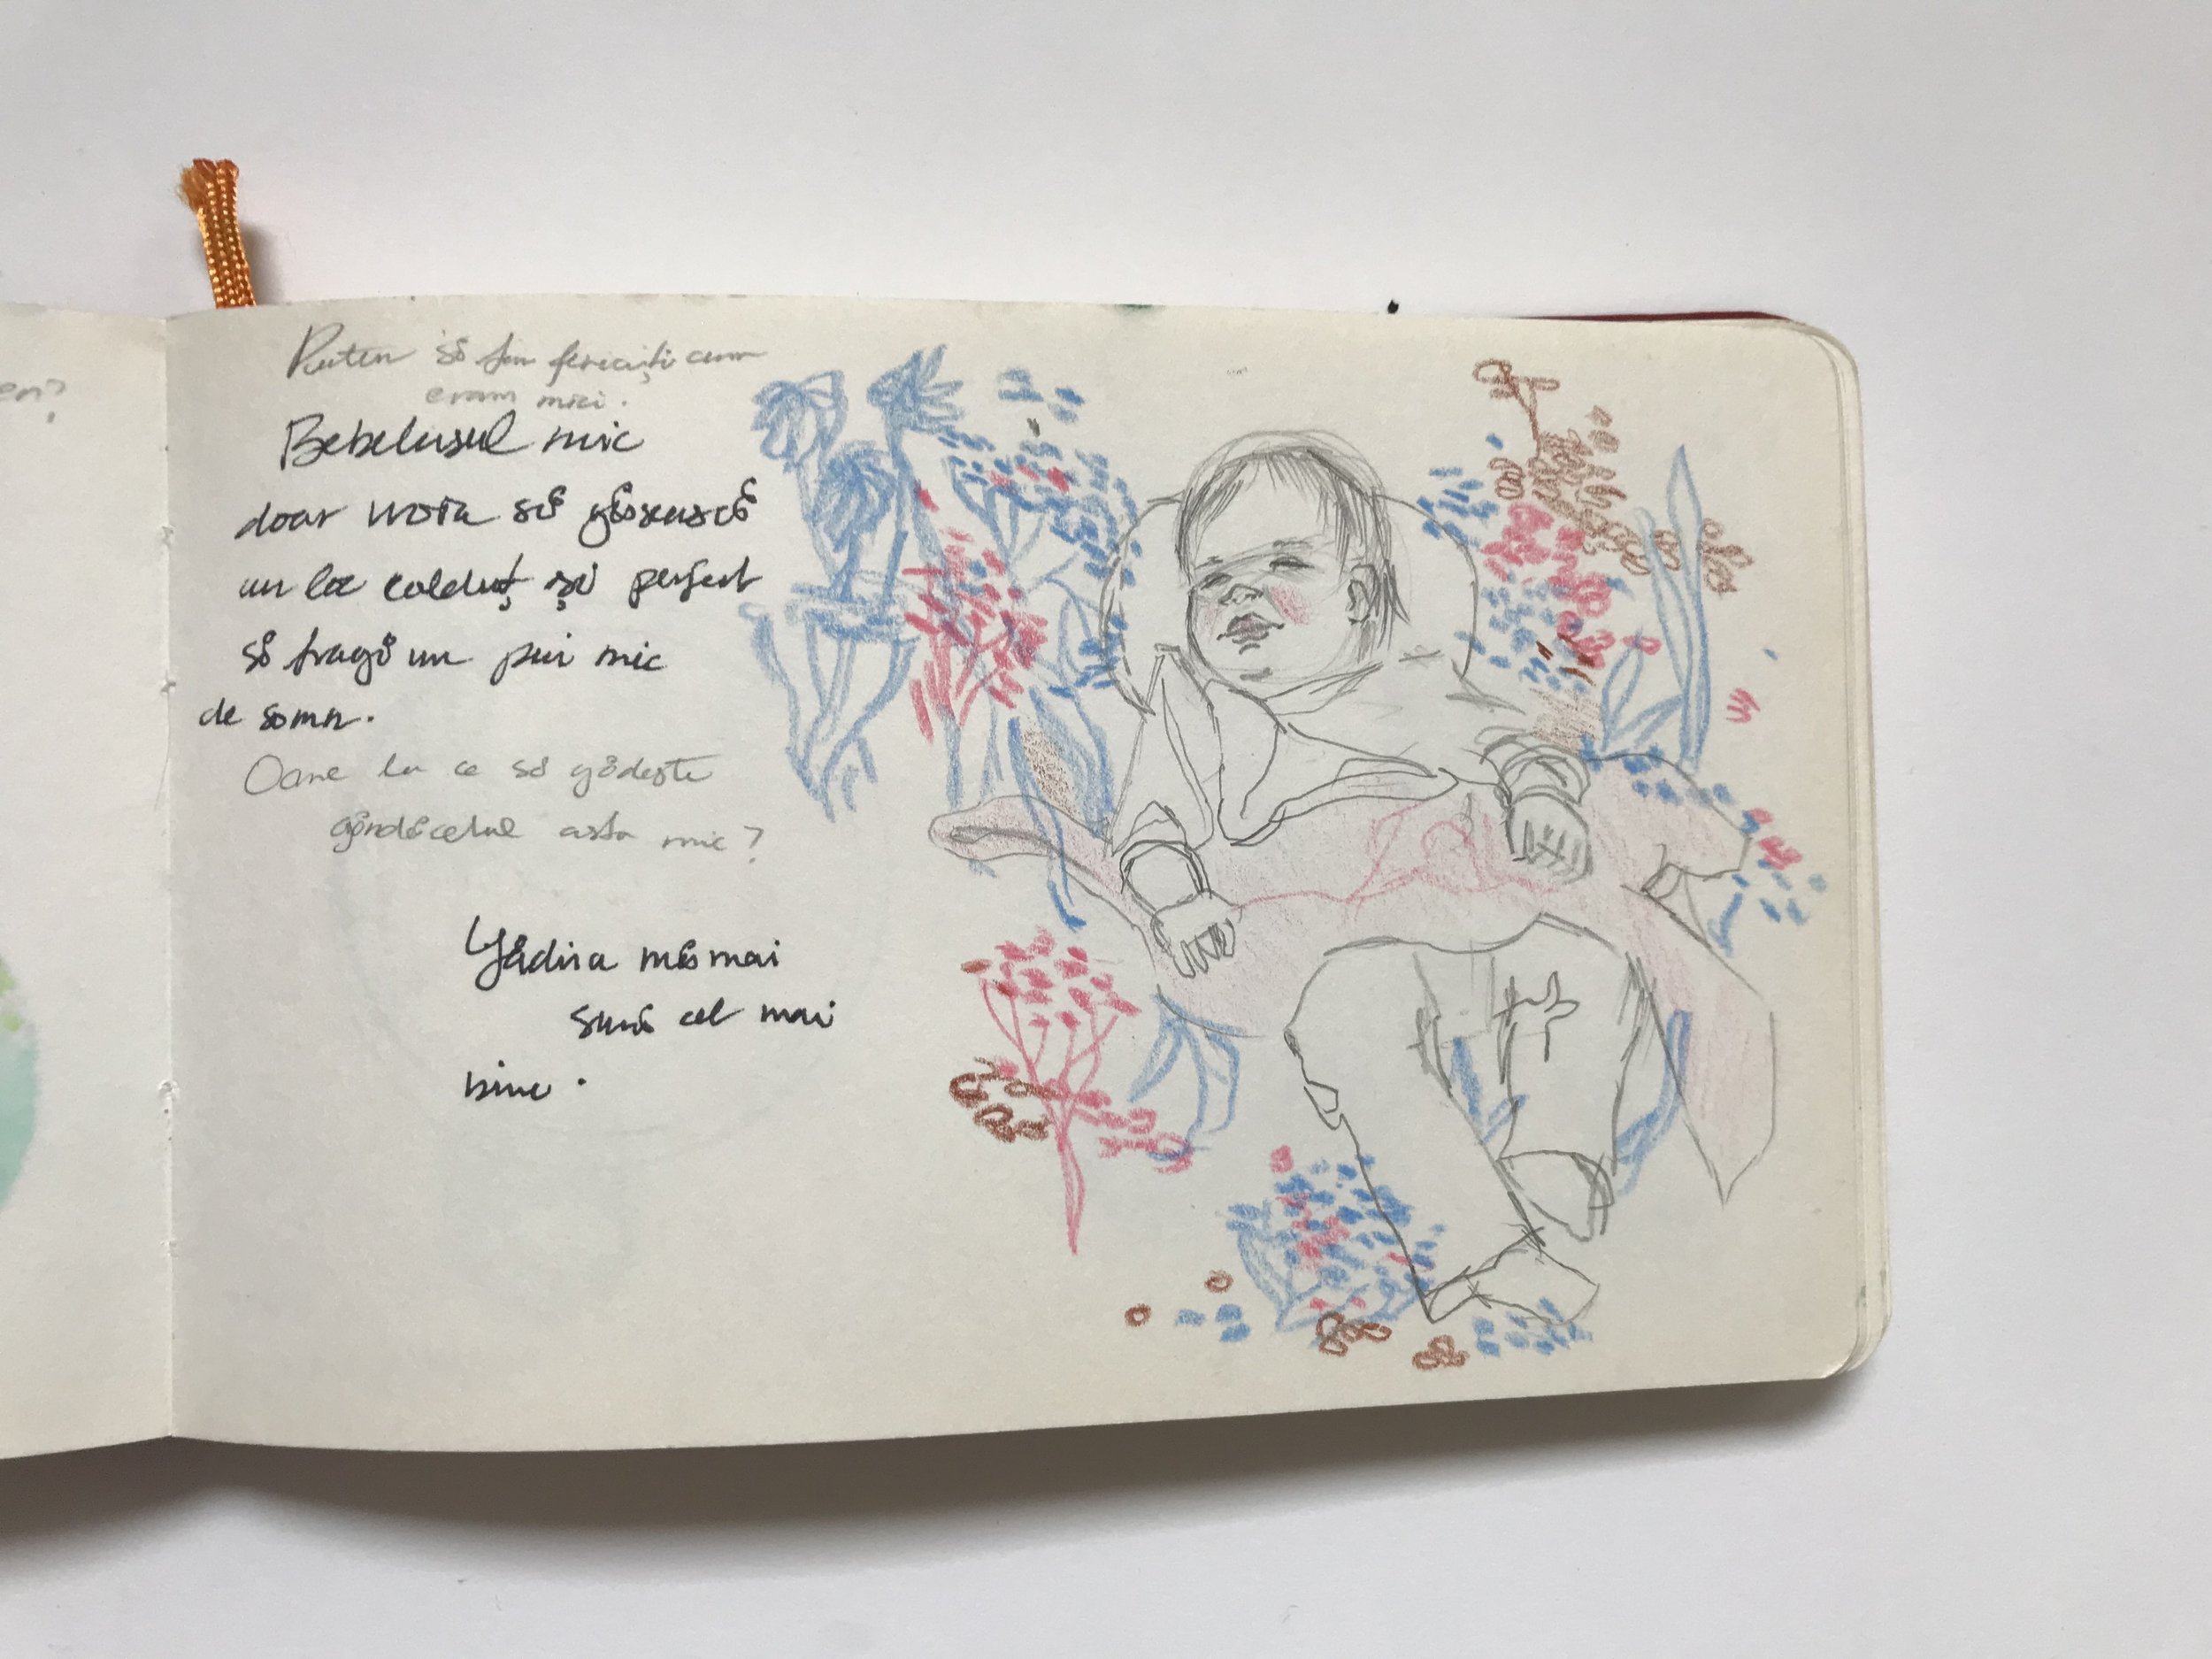 en?
Putem să fim fericiți cum
eram mici.
Bebelusul mic
doar vroia să găsească
un loc călduț și perfect
să tragă un pui mic
de somn.
Oare la ce să gădește
găndăcelul asta mic?
mămai
sună cel mai
bine.